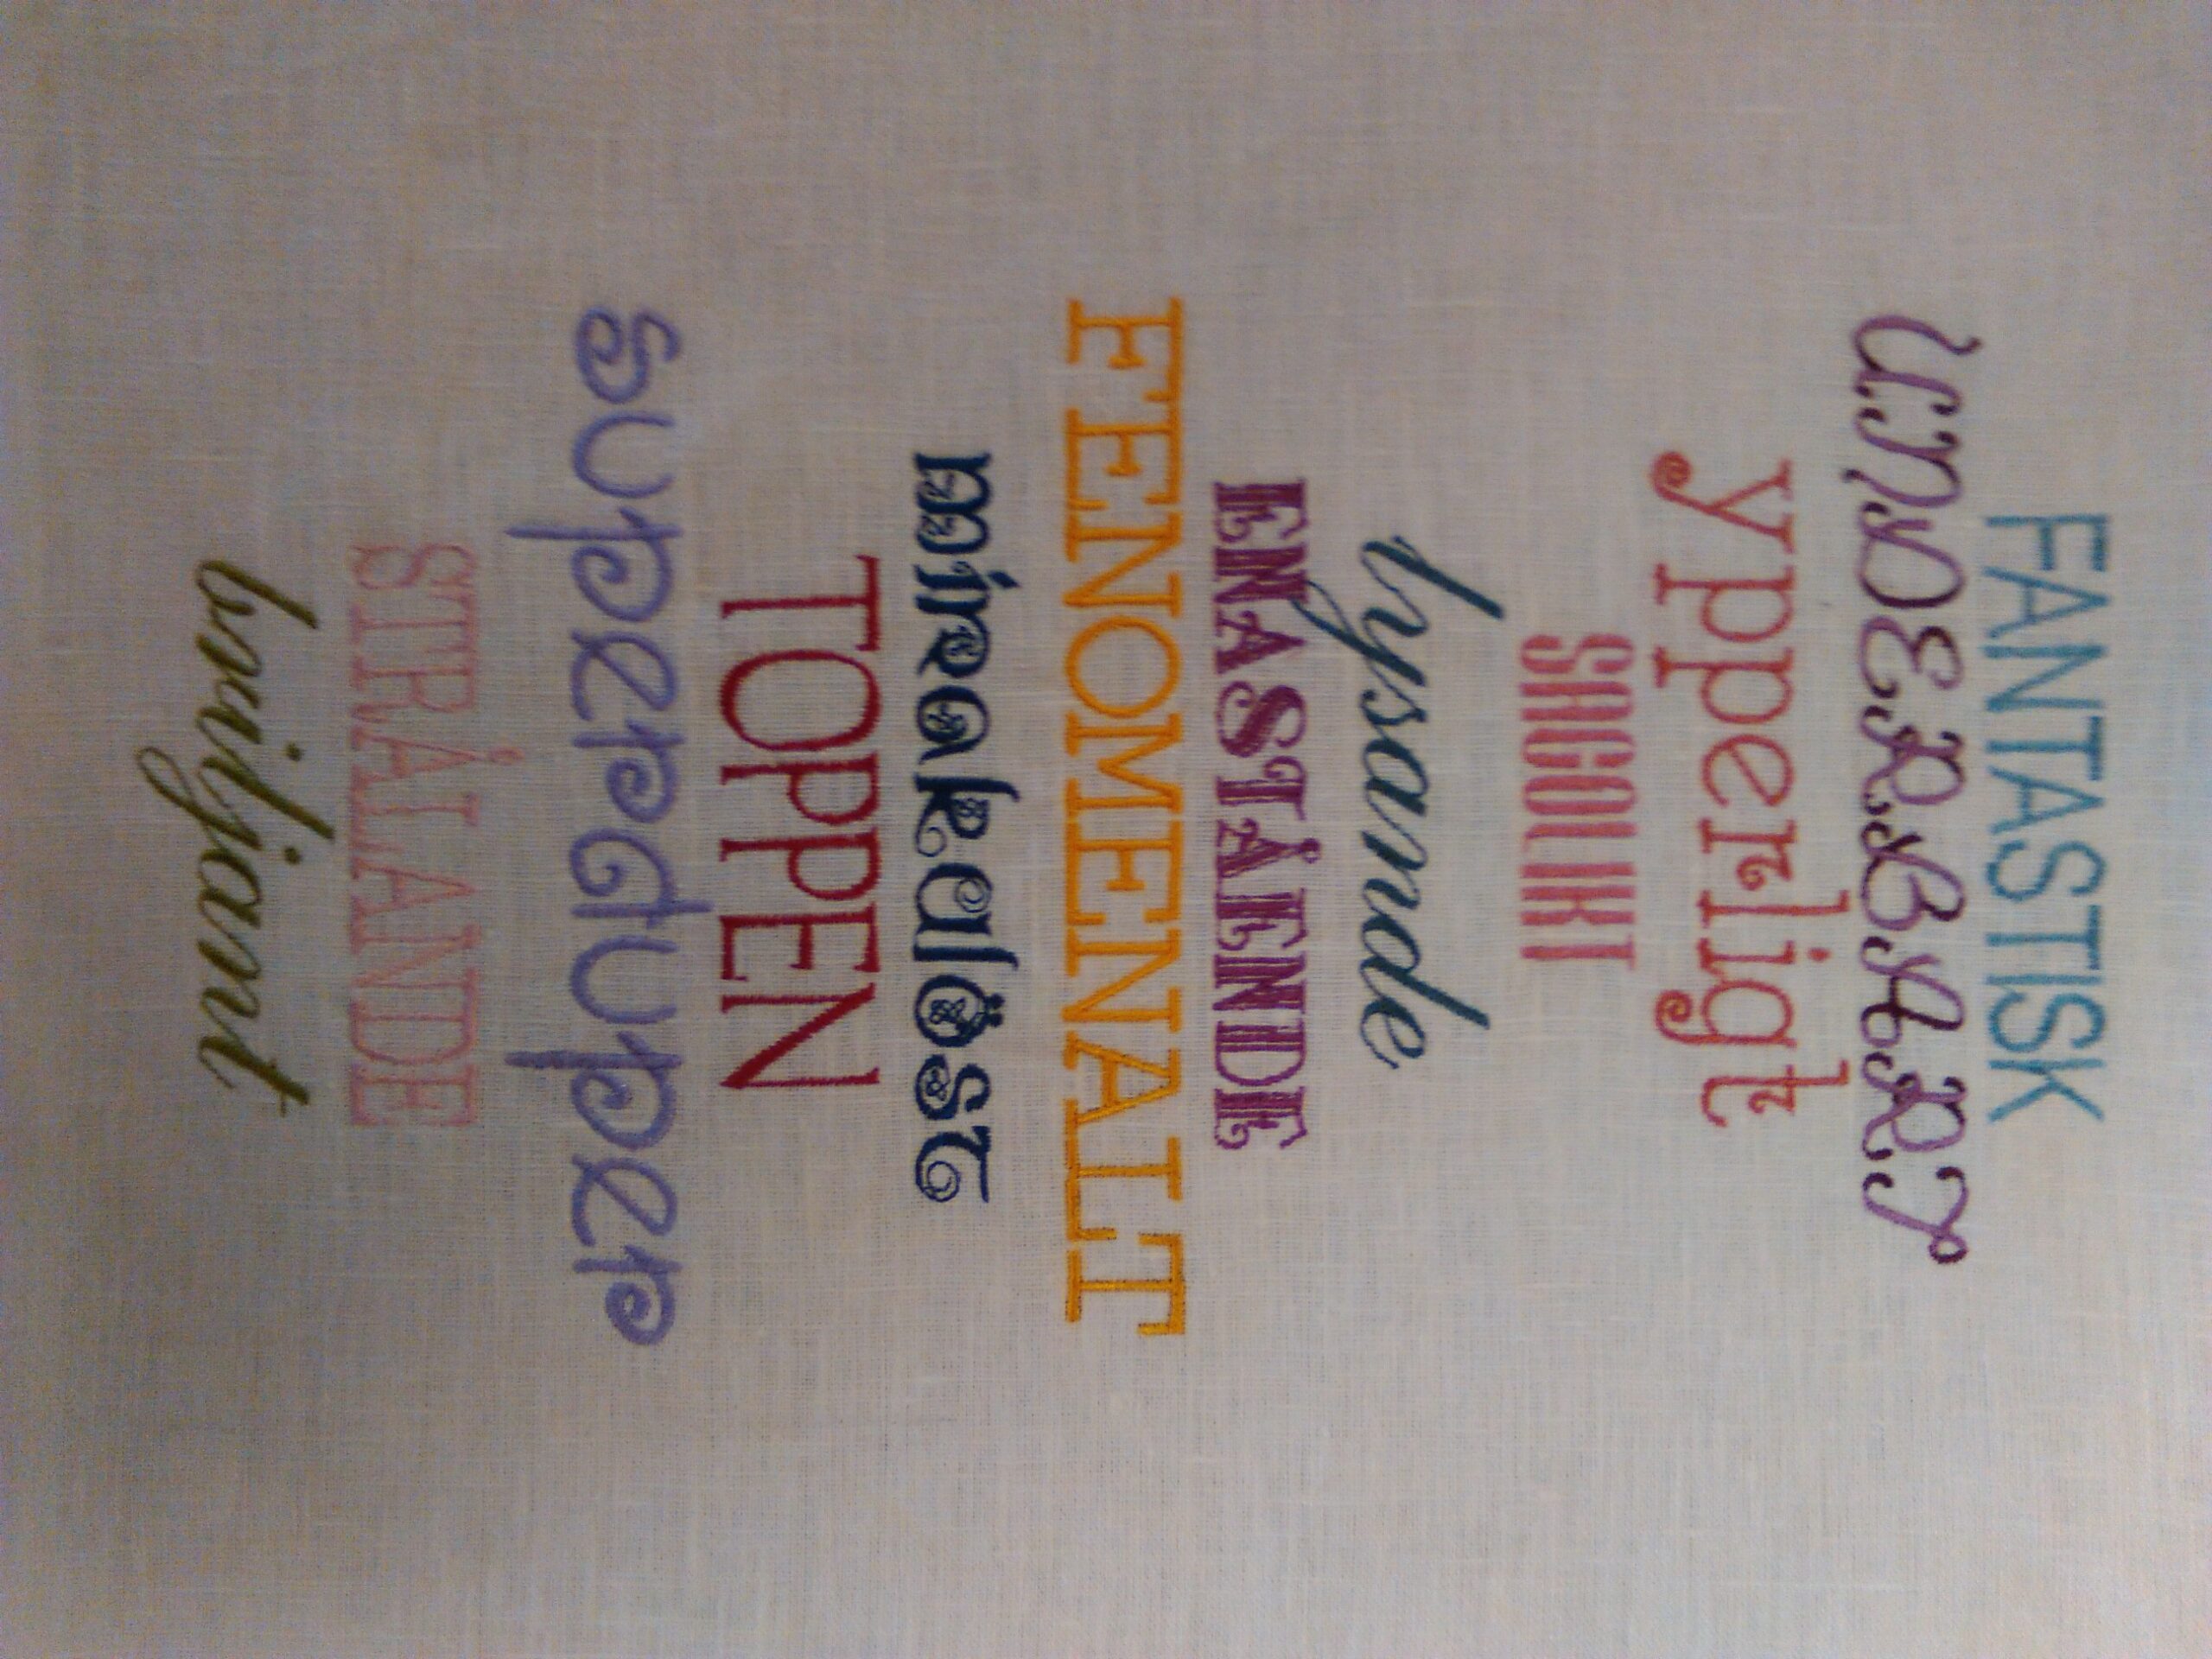 FANTASTISK
UNDERBART
ypperligt
SAGOLIKT
lysande
ENASTÅENDE
FENOMENALT
mirakulöst
TOPPEN
superduper
STRÅLANDE
briljant